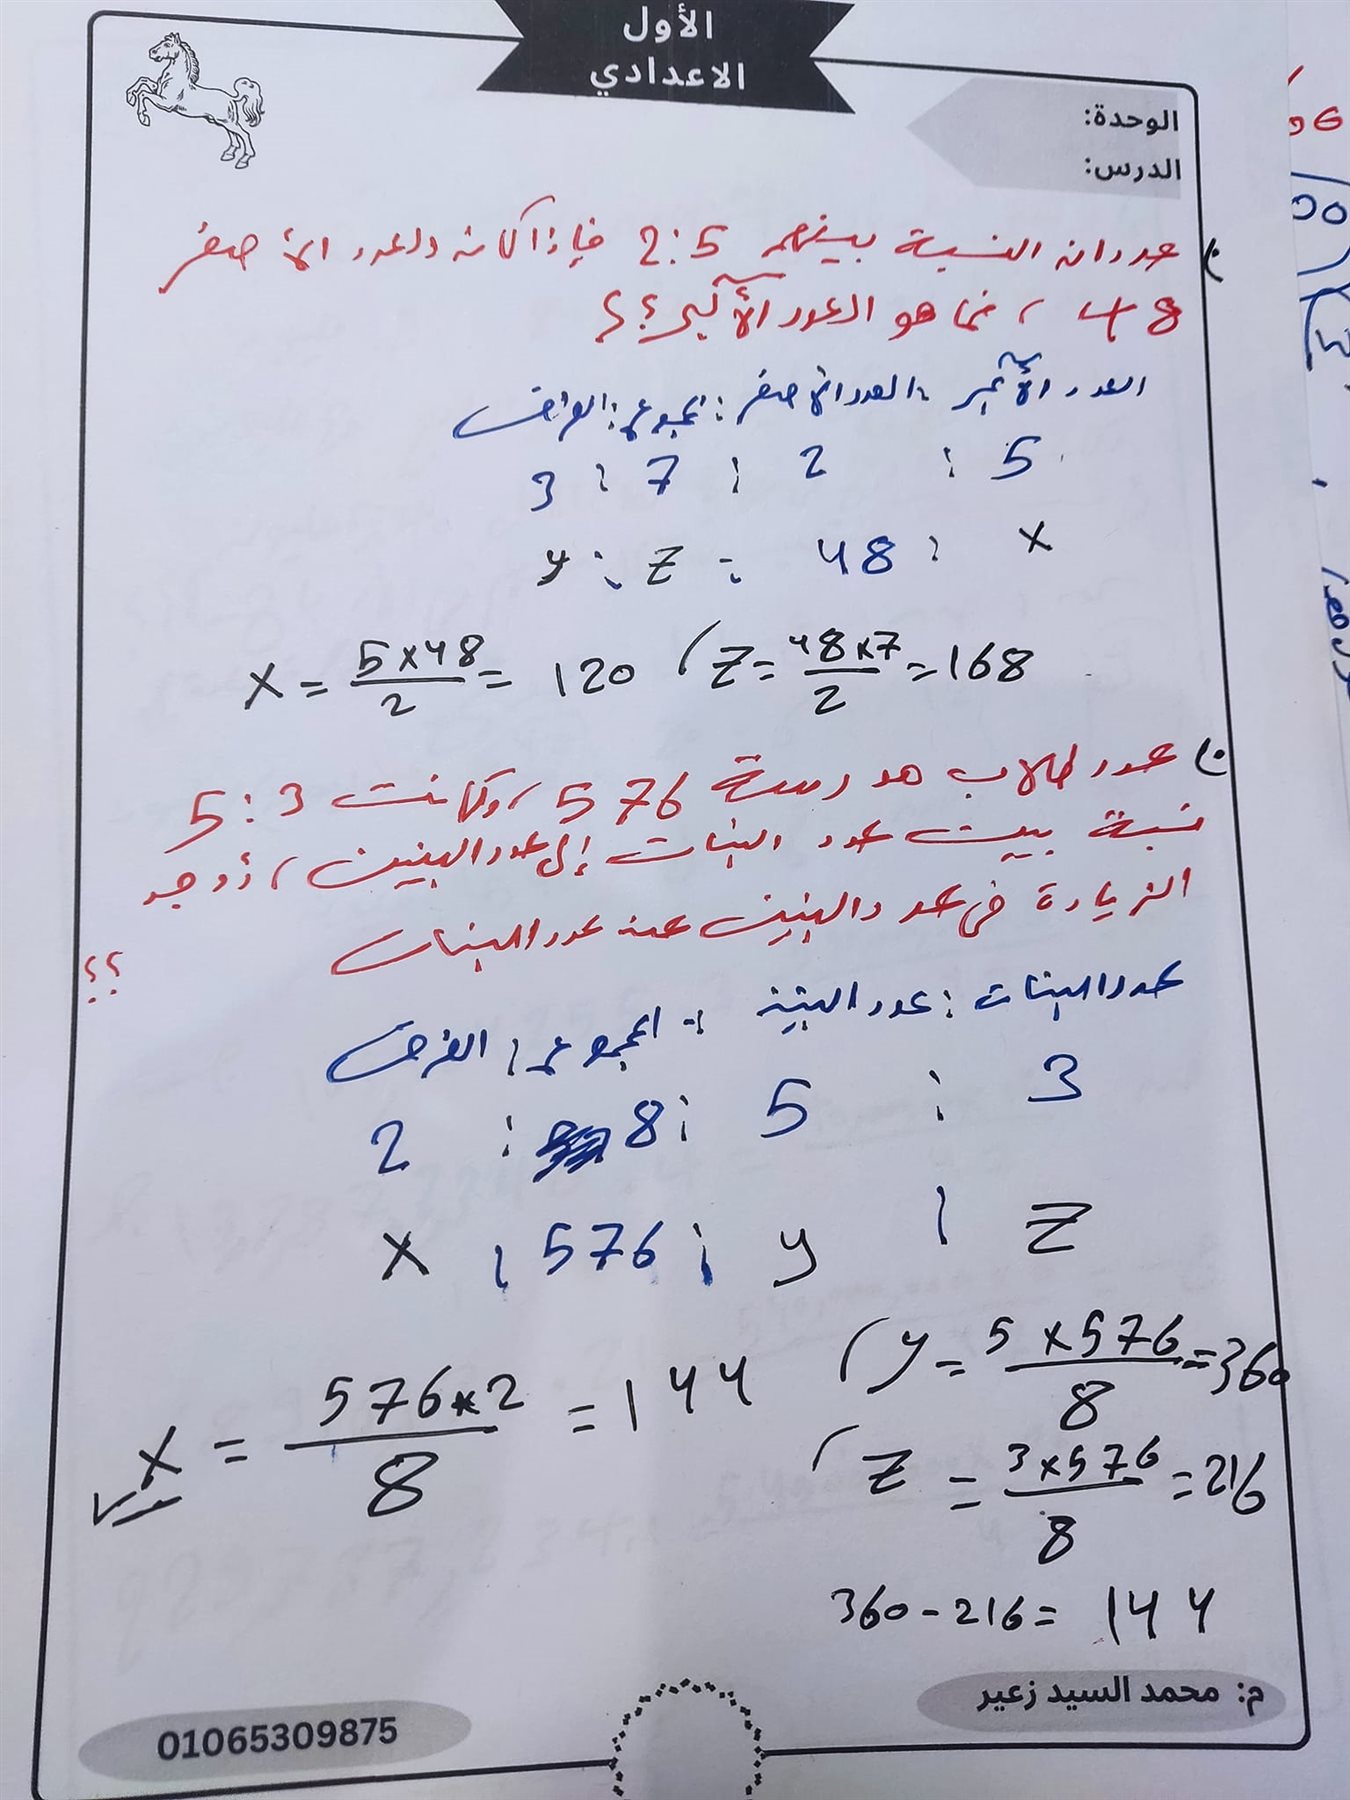 الأول
الاعدادي
الوحدة:
الدرس:
عددان النسبة بينهم 2:5 فإذا كان العدد الأصغر
48 ، فما هو العدد الأكبر؟؟
العدد الأكبر : العدد الأصغر : المجموع : الفرق
5 : 2 : 7 : 3
x : 48 : z : y
x = 5x48/2 = 120 ، z = 48x7/2 = 168
عدد طلاب مدرسة 576 ، وكانت 5:3
نسبة بين عدد البنات إلى عدد البنين ، أوجد
الزيادة في عدد البنين عن عدد البنات
؟؟
عدد البنات : عدد البنين : المجموع : الفرق
3 : 5 : 8 : 2
z : y : 576 : x
، y = 5x576/8 = 360
x = 576x2/8 = 144
، z = 3x576/8 = 216
360-216= 144
م: محمد السيد زعير
01065309875